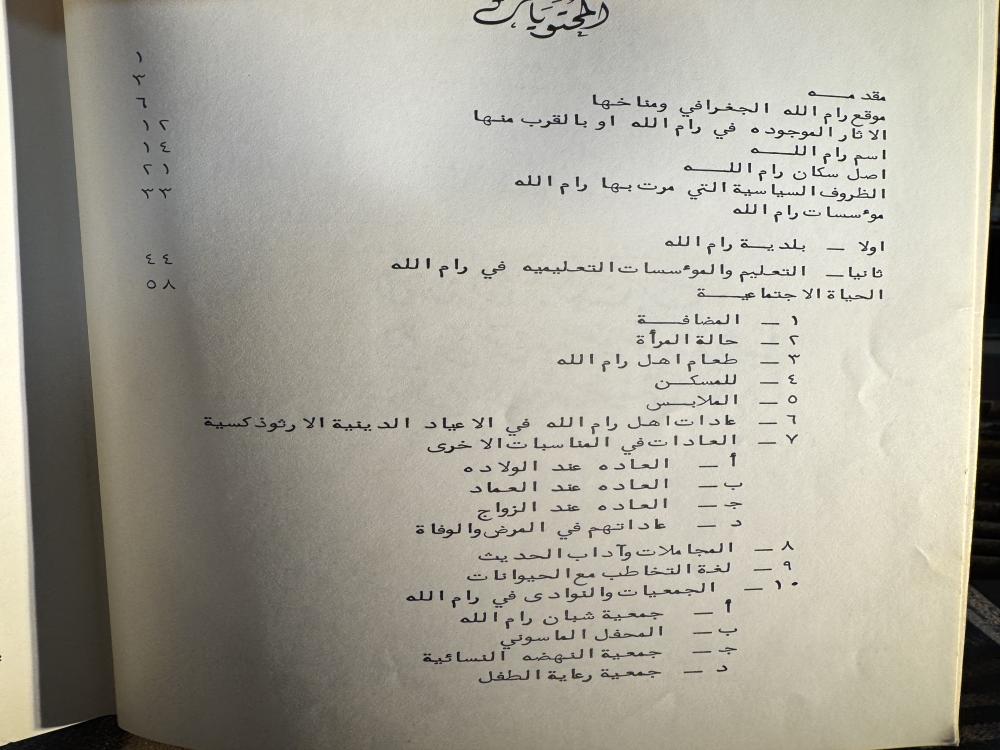 المحتويات
مقدمـــه ١
موقع رام الله الجغرافي ومناخها ٣
الاثار الموجوده في رام الله او بالقرب منها ٦
اسم رام اللـــه ١٢
اصل سكان رام اللـــه ١٤
الظروف السياسية التي مرت بها رام الله ٢١
موءسسات رام الله ٣٣
اولا — بلديـــة رام الله
ثانيا— التعليم والموءسسات التعليميه في رام الله ٤٤
الحياة الاجتماعيـــة ٥٨
١ — المضافـــة
٢ — حالة المرأة
٣ — طعام اهل رام الله
٤ — للمسكـــن
٥ — الملابـــس
٦ — عادات اهل رام الله في الاعياد الدينية الارثوذكسية
٧ — العادات في المناسبات الاخرى
أ — العاده عند الولاده
ب— العاده عند العماد
جـ — العاده عند الزواج
د — عاداتهم في المرض والوفاة
٨ — المجاملات وآداب الحديث
٩ — لغة التخاطب مع الحيوانات
١٠ — الجمعيات والنوادى في رام الله
أ — جمعية شبان رام الله
ب— المحفل الماسوني
جـ — جمعية النهضه النسائية
د — جمعية رعاية الطفل